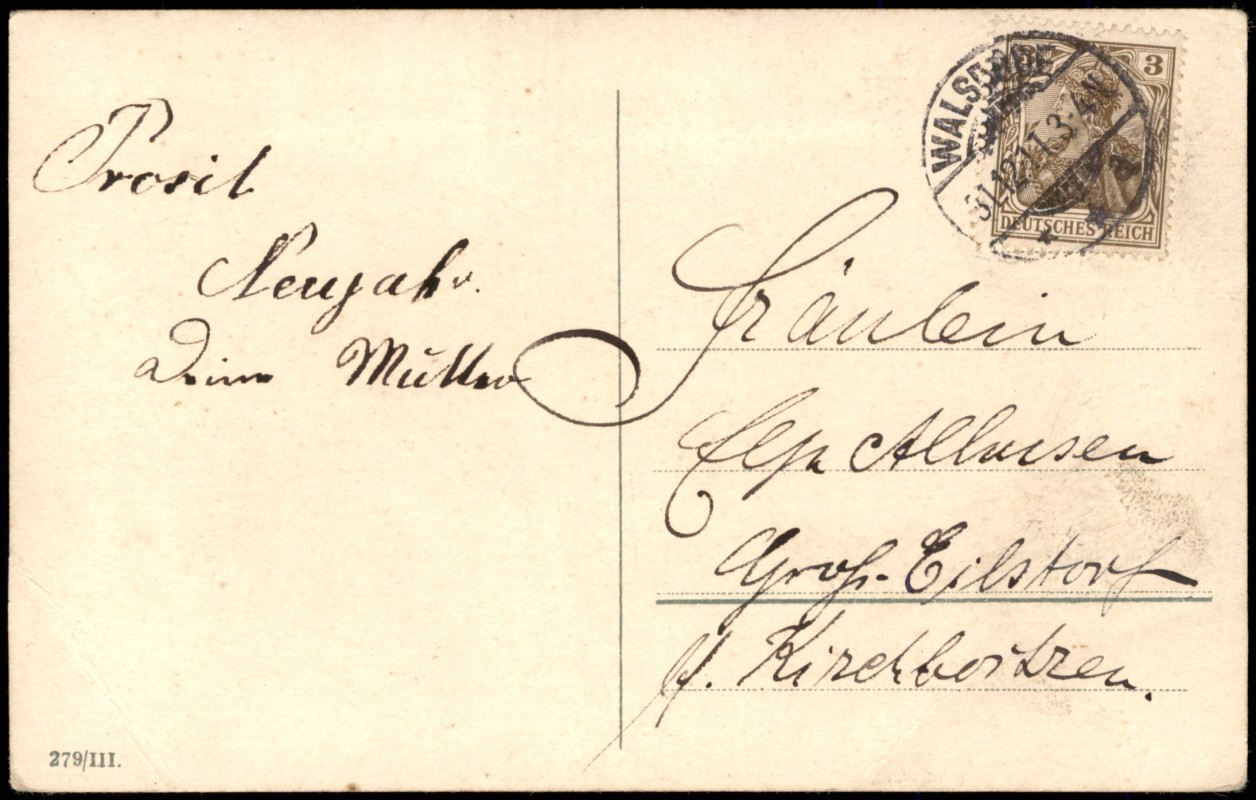 Prosit
Neujahr.
Deine Mutter
WALSRODE
31.12.11.3-4N.
3
DEUTSCHES REICH
Fräulein
Elsa
Groß-Eilstorf
p. Kirchboitzen.
279/III.